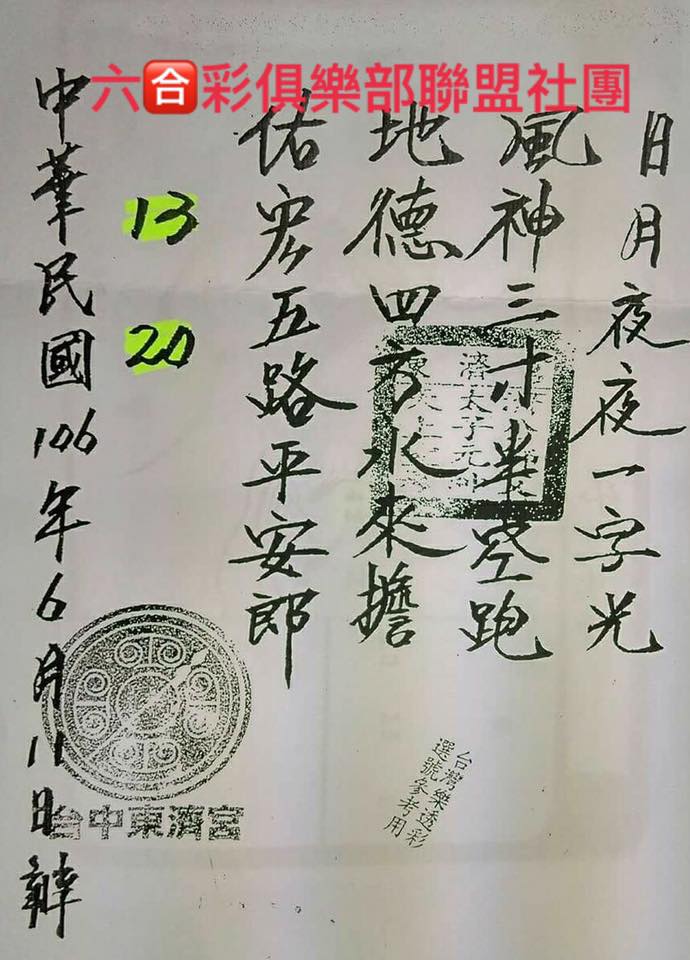 六合彩俱樂部聯盟社團
日月夜夜一字光
風神三寸半空跑
地德四方水來擔
佑宏五路平安郎
13
20
中華民國106年6月11日
台中東濟宮
台灣樂透彩
選號參考用
濟太子元帥